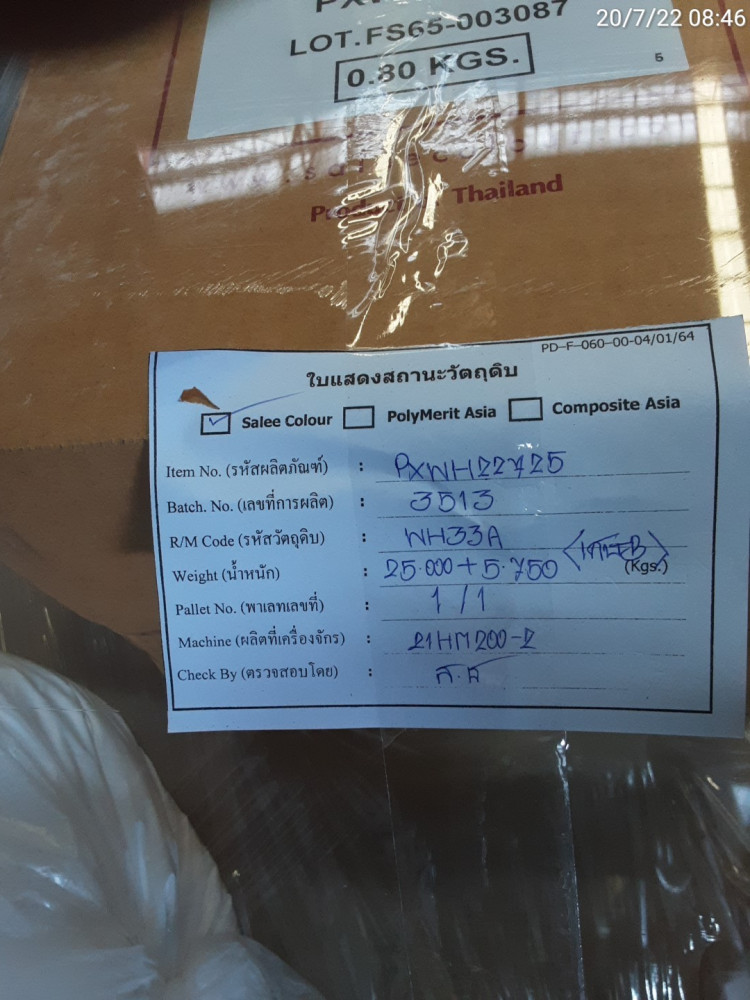 20/7/22 08:46
LOT.FS65-003087
0.80 KGS.
5
Thailand
PD-F-060-00-04/01/64
ใบแสดงสถานะวัตถุดิบ
Salee Colour PolyMerit Asia Composite Asia
Item No. (รหัสผลิตภัณฑ์) : PXWH22725
Batch. No. (เลขที่การผลิต) : 3513
R/M Code (รหัสวัตถุดิบ) : WH33A
Weight (น้ำหนัก) : 25.000+5.750 (Kgs.)
Pallet No. (พาเลทเลขที่) : 1/1
Machine (ผลิตที่เครื่องจักร) : 21HM200-2
Check By (ตรวจสอบโดย) :